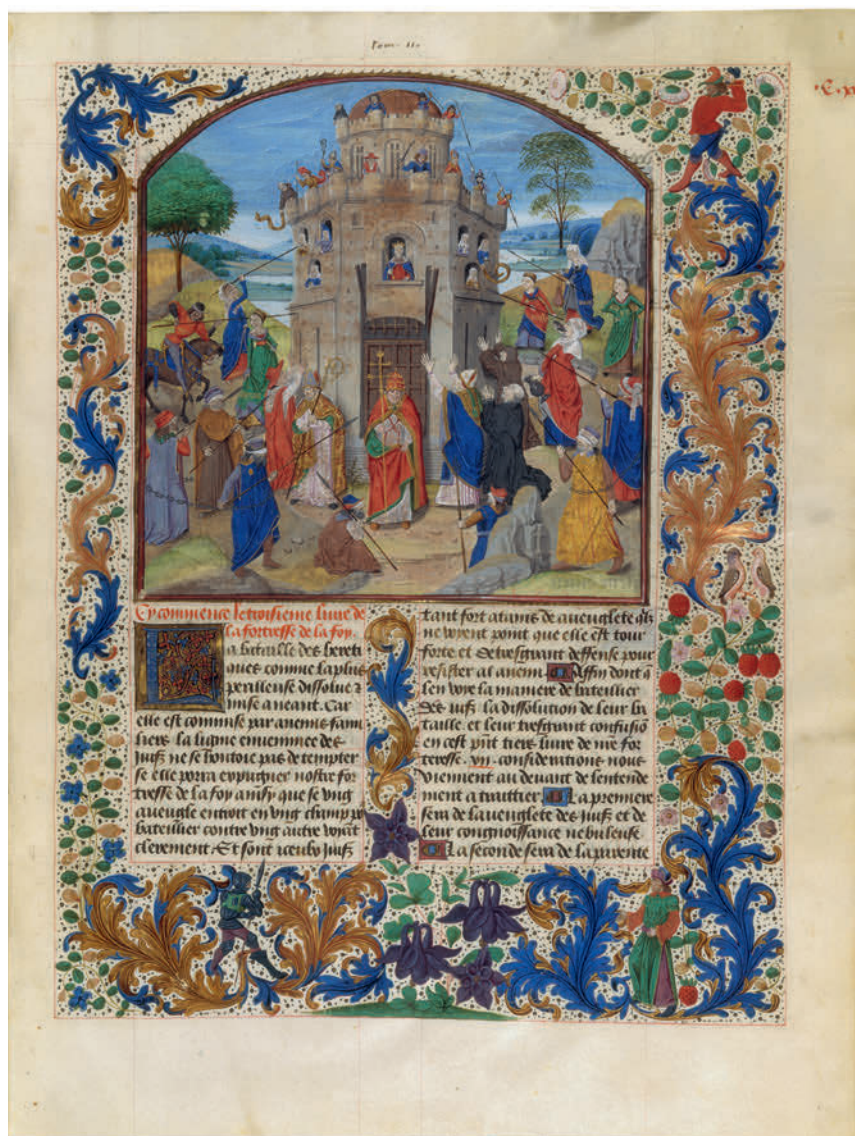 tom. II.
Cy commence le troisieme liure de
la fortresse de la foy.
La bataille des hereti
ques comme la plus
perilleuse dissolue z
mise a neant. Car
elle est commise par anemis fami
liers la ligne enuenimee des
Juifz ne se hontoie pas de tempter
se elle porra expugner nostre for
tresse de la foy ainsy que se vng
aueugle entroit en vng champ po
bateillier contre vng autre voyāt
clerement Et sont iceulx Juifz
tant fort atains de aueuglete qlz
ne voyent point que elle est tour
forte et de tresgrant deffense pour
resister al anemi Affin dont q̄
len voye la maniere de bateillier
des iuifz la dissolution de leur ba
taille et leur tresgrant confusiō
en cest pn̄t tiers liure de nr̄e for
teresse. vii. considerations nous
viennent au deuant de lentende
ment a traittier La premiere
sera de laueuglete des Juifz et de
leur congnoissance nebuleuse
La seconde sera de la parente